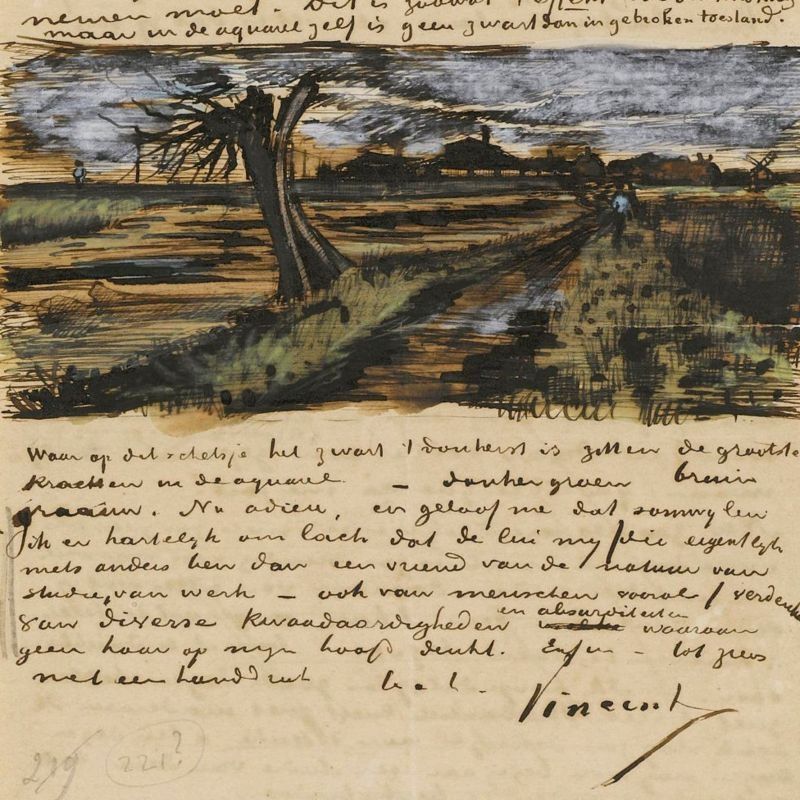 nemen moet. Dit is zoowat
maar in de aquarel zelf is geen zwart dan in gebroken toestand.
Waar op dit schetsje het zwart 't donkerst is zitten de grootste
krachten in de aquarel – donkergroen bruin
graauw. Nu adieu, en geloof me dat somwylen
ik er hartelyk om lach dat de lui my /die eigentlyk
niets anders ben dan een vriend van de natuur van
studie, van werk – ook van menschen vooral / verdenken
van diverse kwaadaardigheden en absurditeiten waaraan
geen haar op myn hoofd denkt. Enfin – tot ziens
met een handdruk t. à t.
Vincent
219 221?